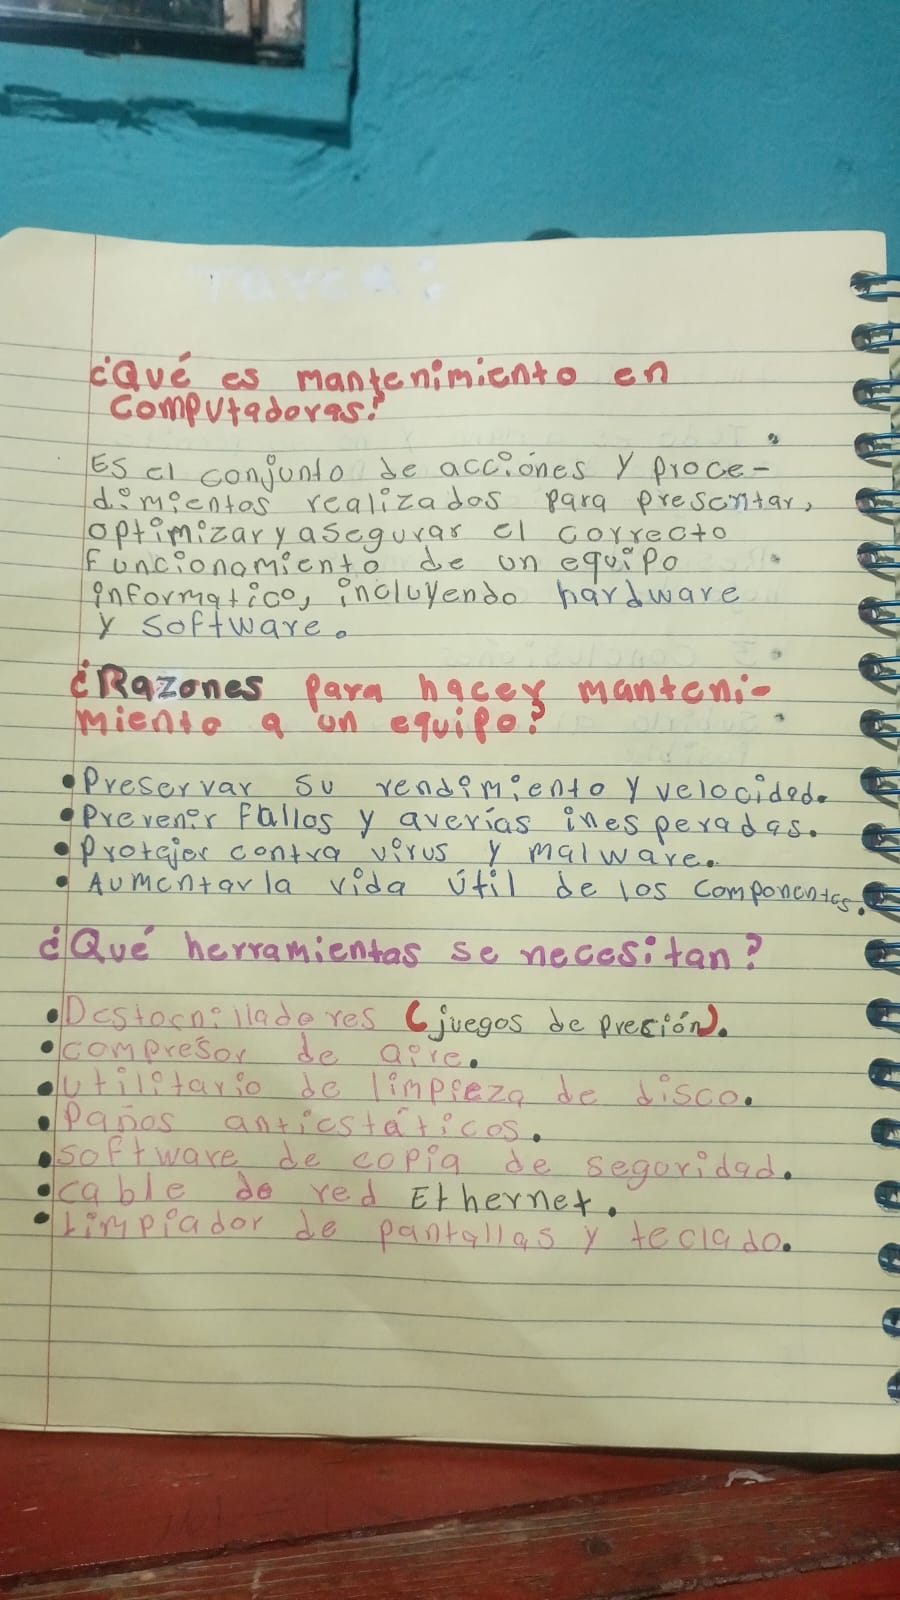 ¿Qué es mantenimiento en
computadoras?
Es el conjunto de acciónes y proce-
dimientos realizados para presentar,
optimizar y asegurar el correcto
funcionamiento de un equipo
informatico, incluyendo hardware
y software.
¿Razones para hacer manteni-
miento a un equipo?
•Preservar su rendimiento y velocidad.
•Prevenir fallos y averías inesperadas.
•Protejer contra virus y malware.
•Aumentar la vida útil de los componentes.
¿Qué herramientas se necesitan?
•Destornilladores (juegos de presión).
•compresor de aire.
•utilitario de limpieza de disco.
•Paños antiestáticos.
•software de copia de seguridad.
•cable de red Ethernet.
•Limpiador de pantallas y teclado.